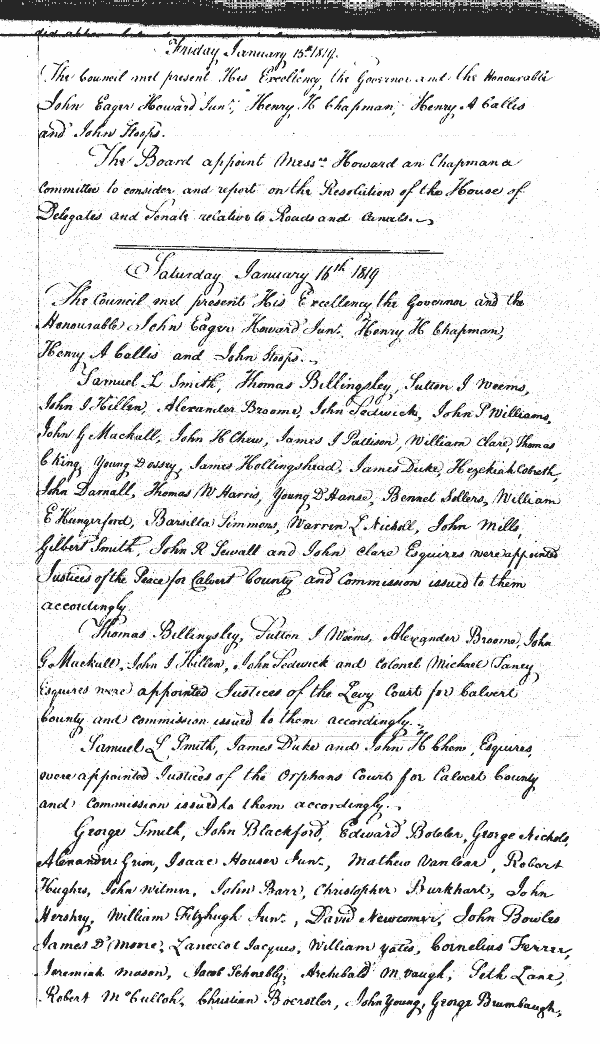 Friday January 15th 1819.
The Council met present His Excellency the Governor and the Honourable
John Eager Howard Junr, Henry H Chapman, Henry A Callis
and John Stoops.
The Board appoint Messrs Howard an Chapman a
committee to consider and report on the Resolution of the House of
Delegates and Senate relative to Roads and Canals.
Saturday January 16th 1819
The Council met present His Excellency the Governor and the
Honourable John Eager Howard Junr. Henry H Chapman,
Henry A Callis and John Stoops.
Samuel L Smith, Thomas Billingsley, Sutton I Weems,
John I Hillen, Alexander Broome, John Sedwick, John P Williams,
John G Mackall, John H Chew, James I Pattison, William Clare, Thomas
C King, Young Dossey, James Hollingshead, James Duke, Hezekiah Cobreth,
John Darnall, Thomas W Harris, Young D Hanse, Bennet Sollers, William
E Hungerford, Barsilla Simmons, Warren L Nicholl, John Mills,
Gilbert Smith, John R Sewall and John Clare Esquires were appointed
Justices of the Peace for Calvert County and Commission issued to them
accordingly.
Thomas Billingsley, Sutton I Weems, Alexander Broome, John
G Mackall, John I Hillen, John Sedwick and Colonel Michael Taney
Esquires were appointed Justices of the Levy Court for Calvert
County and commission issued to them accordingly.
Samuel L. Smith, James Duke and John H Chew, Esquires,
were appointed Justices of the Orphans Court for Calvert County
and Commission issued to them accordingly.
George Smith, John Blackford, Edward Boteler, George Nichols,
Alexander Grim, Isaac Houser Junr, Mathew Vanlear, Robert
Hughes, John Witmer, John Barr, Christopher Burkhart, John
Hershey, William Fitzhugh Junr, David Newcomer, John Bowles
James D Moore, Lanecelot Jacques, William Yates, Cornelius Ferree,
Jeremiah Mason, Jacob Schnebly, Archibald M. Waugh, Seth Lane,
Robert McCulloh, Christian Boerstler, John Young, George Brumbaugh,